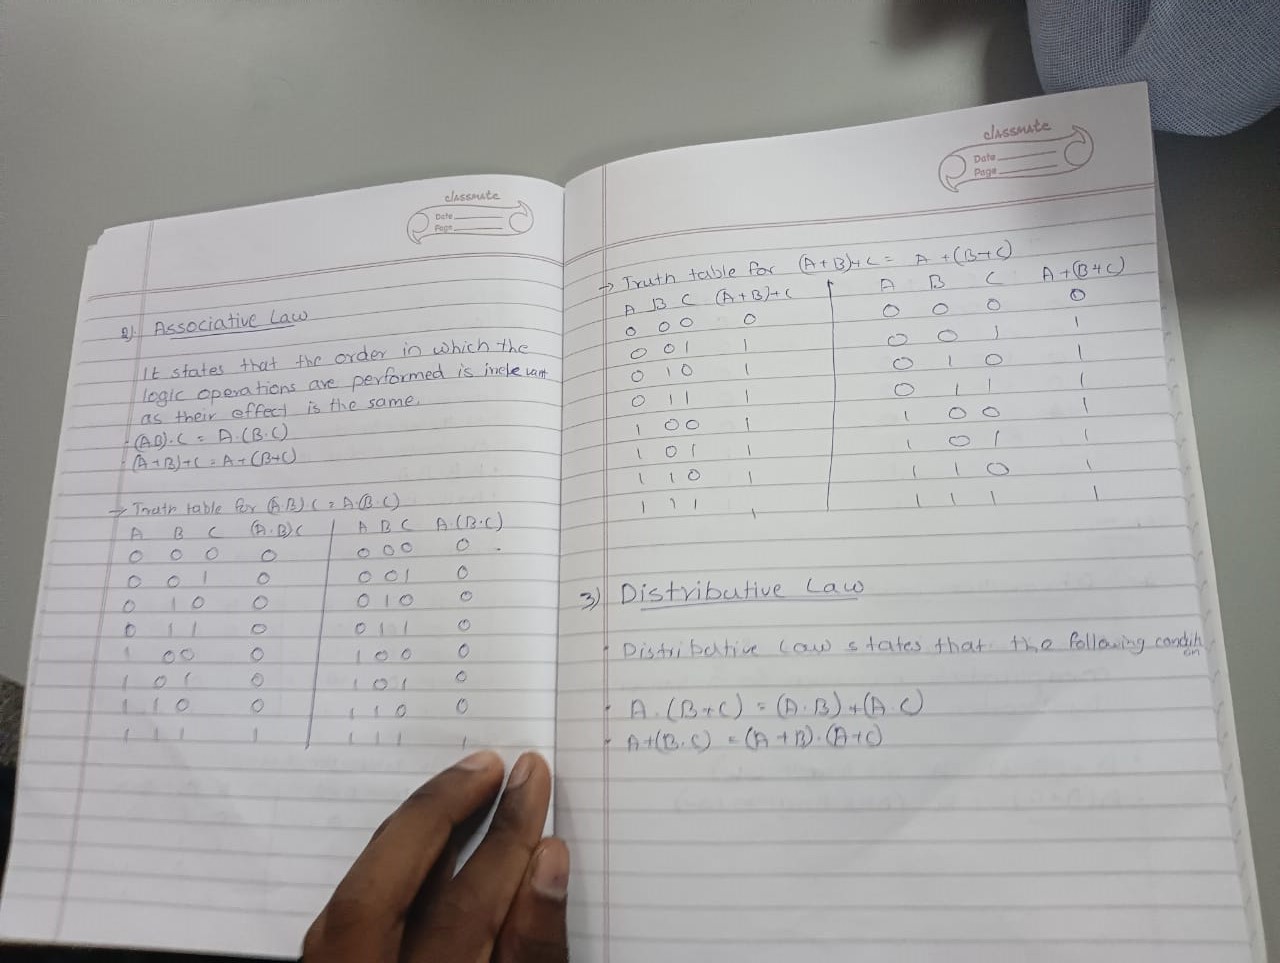 classmate
Date
Page
2) Associative Law
It states that the order in which the
logic operations are performed is irrelevant
as their effect is the same.
(A.B).C = A.(B.C)
(A+B)+C = A+(B+C)
→ Truth table for (A.B)C = A.(B.C)
A B C (A.B)C | A B C A.(B.C)
0 0 0 0 | 0 0 0 0
0 0 1 0 | 0 0 1 0
0 1 0 0 | 0 1 0 0
0 1 1 0 | 0 1 1 0
1 0 0 0 | 1 0 0 0
1 0 1 0 | 1 0 1 0
1 1 0 0 | 1 1 0 0
1 1 1 1 | 1 1 1 1
classmate
Date
Page
→ Truth table for (A+B)+C = A+(B+C)
A B C (A+B)+C | A B C A+(B+C)
0 0 0 0 | 0 0 0 0
0 0 1 1 | 0 0 1 1
0 1 0 1 | 0 1 0 1
0 1 1 1 | 0 1 1 1
1 0 0 1 | 1 0 0 1
1 0 1 1 | 1 0 1 1
1 1 0 1 | 1 1 0 1
1 1 1 1 | 1 1 1 1
3) Distributive Law
Distributive Law states that the following condition
A.(B+C) = (A.B)+(A.C)
A+(B.C) = (A+B).(A+C)